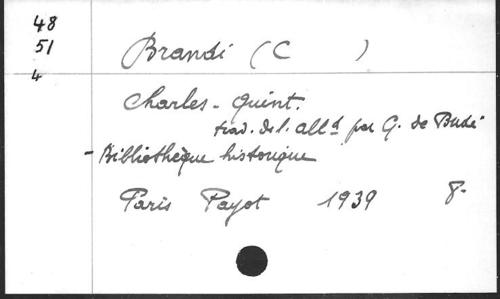 48
51
4
Brandi (C )
Charles-Quint.
trad. de l'alld par G. de Budé
- Bibliothèque historique
Paris Payot 1939 8-